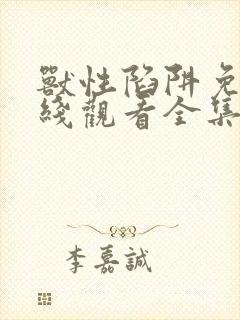 獸性陷阱免
綫觀看全集
李嘉誠